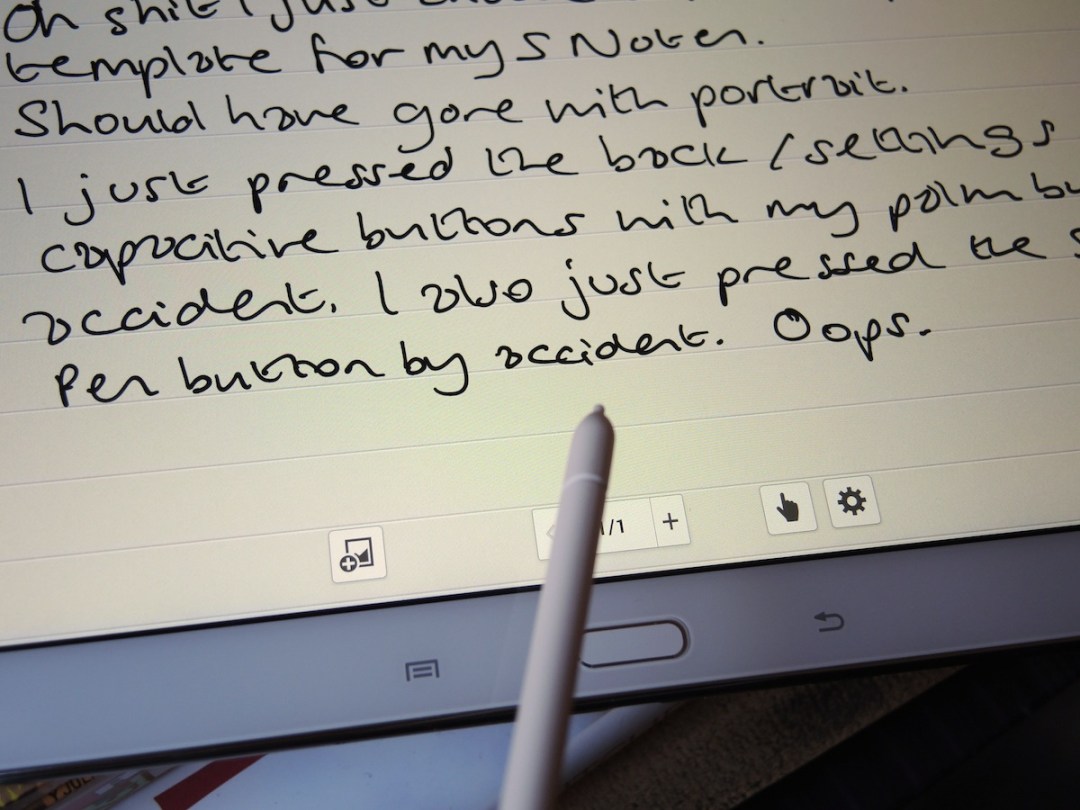 Oh shit I just
template for my S Note.
Should have gone with portrait.
I just pressed the back / settings
capacitive buttons with my palm by
accident. I also just pressed the S
Pen button by accident. Oops.
1/1 +